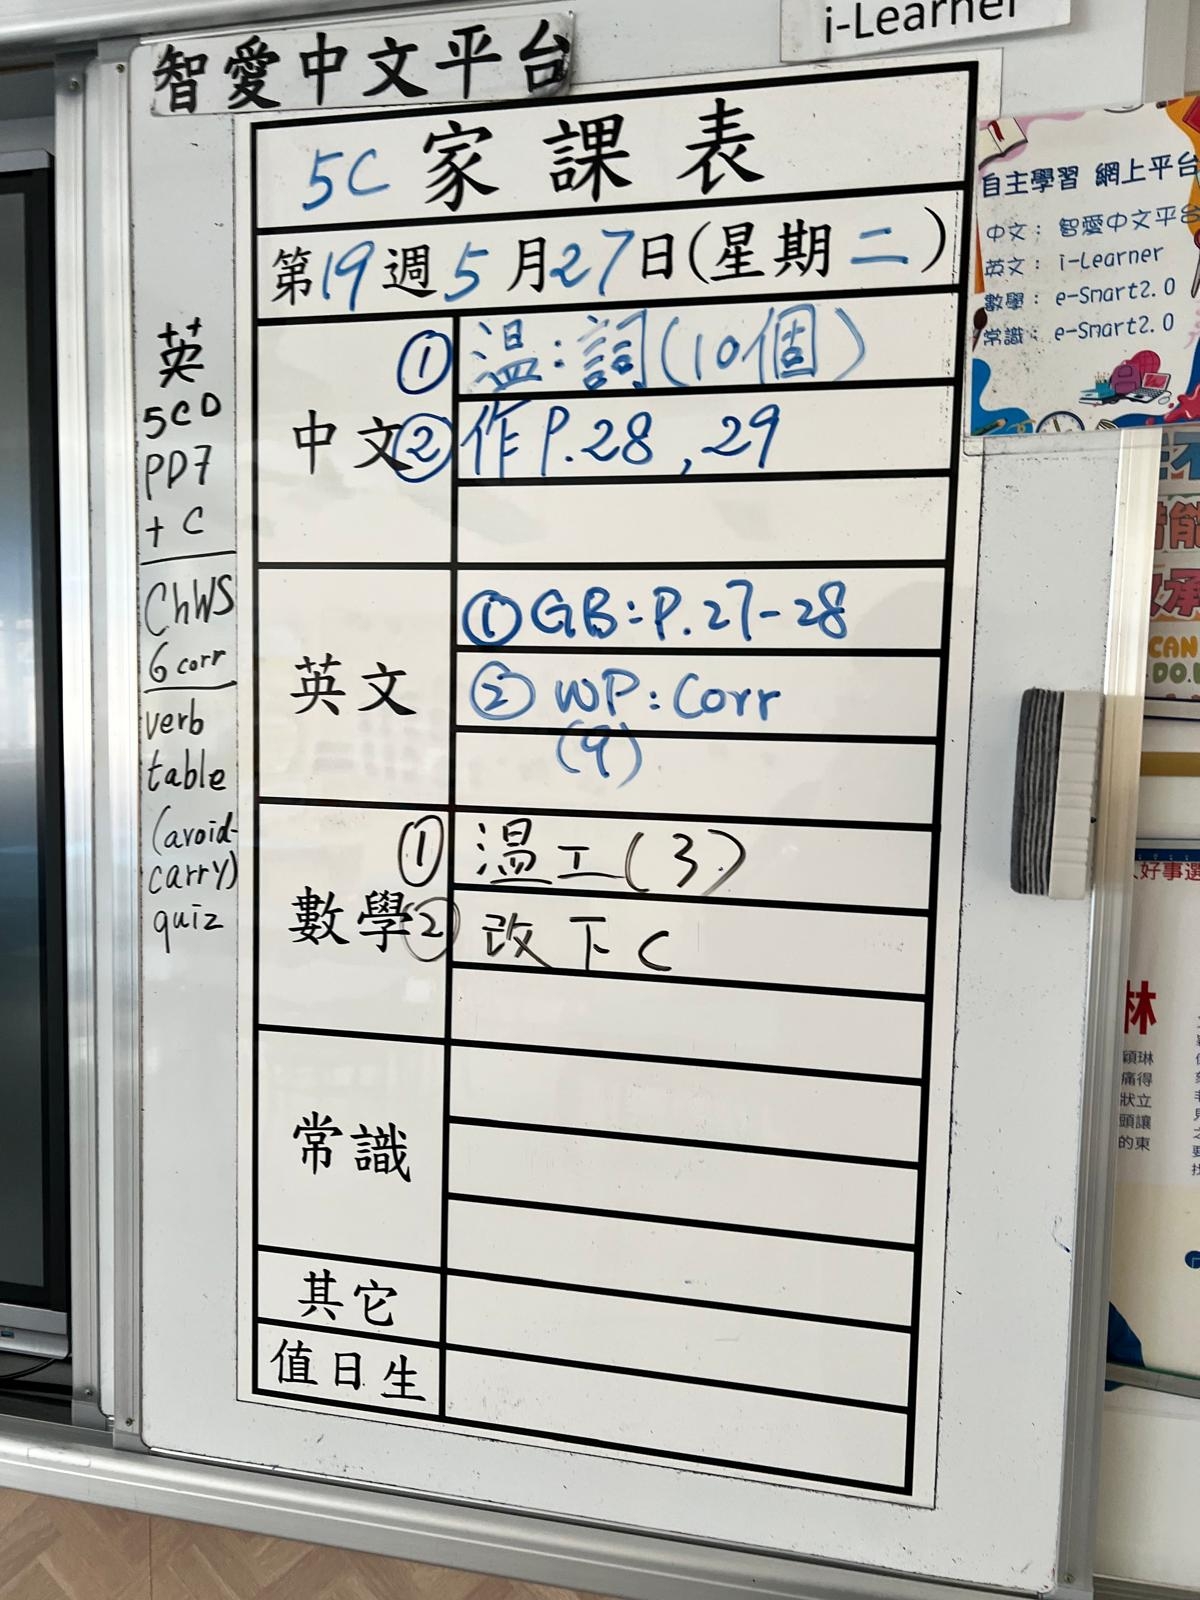 i-Learner
智愛中文平台
5C 家課表
第19週5月27日(星期二)
中文
① 温:詞(10個)
② 作P.28,29
英文
① GB:P.27-28
② WP:Corr
(9)
數學
① 温工(3)
② 改下C
常識
其它
值日生
英
5CD
PD7
+ C
ChWS
6 corr
verb
table
(avoid-
carry)
quiz
自主學習 網上平台
中文: 智愛中文平台
英文: i-Learner
數學: e-Smart2.0
常識: e-Smart2.0
能
承
CAN
DO.
好事選
林
穎琳
痛得
狀立
頭讓
的東